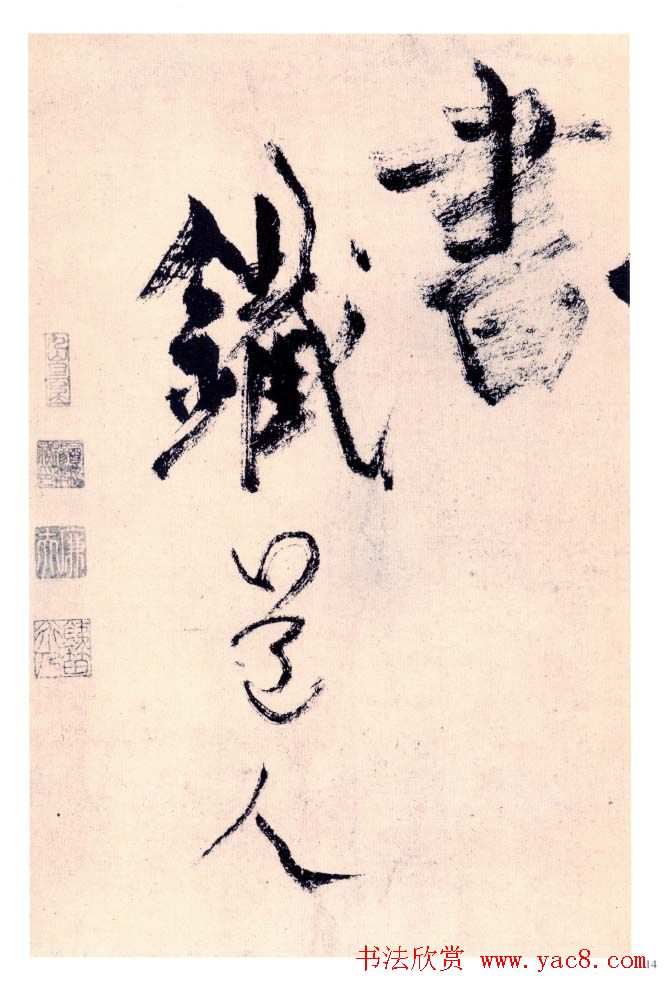 書
鐵
道
人
书法欣赏 www.yac8.com
14